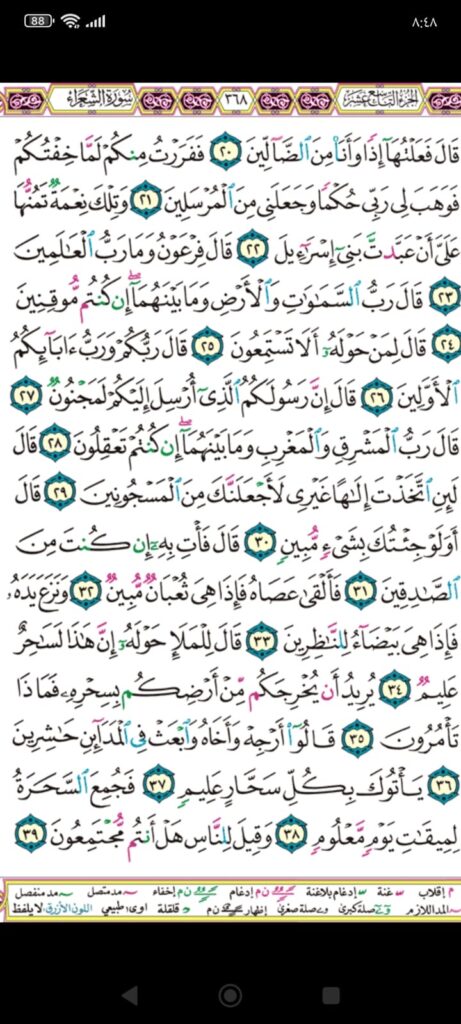 88 ٨:٤٨
سُورَةُ الشُّعَرَاءِ ٣٦٨ الجُزْءُ التَّاسِعَ عَشَرَ
قَالَ فَعَلْتُهَآ إِذًا وَأَنَا۠ مِنَ ٱلضَّآلِّينَ ٢٠ فَفَرَرْتُ مِنكُمْ لَمَّا خِفْتُكُمْ
فَوَهَبَ لِى رَبِّى حُكْمًا وَجَعَلَنِى مِنَ ٱلْمُرْسَلِينَ ٢١ وَتِلْكَ نِعْمَةٌ تَمُنُّهَا
عَلَىَّ أَنْ عَبَّدتَّ بَنِىٓ إِسْرَٰٓءِيلَ ٢٢ قَالَ فِرْعَوْنُ وَمَا رَبُّ ٱلْعَٰلَمِينَ
٢٣ قَالَ رَبُّ ٱلسَّمَٰوَٰتِ وَٱلْأَرْضِ وَمَا بَيْنَهُمَآ ۖ إِن كُنتُم مُّوقِنِينَ
٢٤ قَالَ لِمَنْ حَوْلَهُۥٓ أَلَا تَسْتَمِعُونَ ٢٥ قَالَ رَبُّكُمْ وَرَبُّ ءَابَآئِكُمُ
ٱلْأَوَّلِينَ ٢٦ قَالَ إِنَّ رَسُولَكُمُ ٱلَّذِىٓ أُرْسِلَ إِلَيْكُمْ لَمَجْنُونٌ ٢٧
قَالَ رَبُّ ٱلْمَشْرِقِ وَٱلْمَغْرِبِ وَمَا بَيْنَهُمَآ ۖ إِن كُنتُمْ تَعْقِلُونَ ٢٨ قَالَ
لَئِنِ ٱتَّخَذْتَ إِلَٰهًا غَيْرِى لَأَجْعَلَنَّكَ مِنَ ٱلْمَسْجُونِينَ ٢٩ قَالَ
أَوَلَوْ جِئْتُكَ بِشَىْءٍ مُّبِينٍ ٣٠ قَالَ فَأْتِ بِهِۦٓ إِن كُنتَ مِنَ
ٱلصَّٰدِقِينَ ٣١ فَأَلْقَىٰ عَصَاهُ فَإِذَا هِىَ ثُعْبَانٌ مُّبِينٌ ٣٢ وَنَزَعَ يَدَهُۥ
فَإِذَا هِىَ بَيْضَآءُ لِلنَّٰظِرِينَ ٣٣ قَالَ لِلْمَلَإِ حَوْلَهُۥٓ إِنَّ هَٰذَا لَسَٰحِرٌ
عَلِيمٌ ٣٤ يُرِيدُ أَن يُخْرِجَكُم مِّنْ أَرْضِكُم بِسِحْرِهِۦ فَمَاذَا
تَأْمُرُونَ ٣٥ قَالُوٓا۟ أَرْجِهْ وَأَخَاهُ وَٱبْعَثْ فِى ٱلْمَدَآئِنِ حَٰشِرِينَ
٣٦ يَأْتُوكَ بِكُلِّ سَحَّارٍ عَلِيمٍ ٣٧ فَجُمِعَ ٱلسَّحَرَةُ
لِمِيقَٰتِ يَوْمٍ مَّعْلُومٍ ٣٨ وَقِيلَ لِلنَّاسِ هَلْ أَنتُم مُّجْتَمِعُونَ ٣٩
م إقلاب غنة إدغام بلاغنة ن م إدغام ن م إخفاء مد متصل مد منفصل
المد اللازم صلة كبرى صلة صغرى إظهار ن م قلقلة اوى: طبيعي اللون الأزرق: لا يلفظ